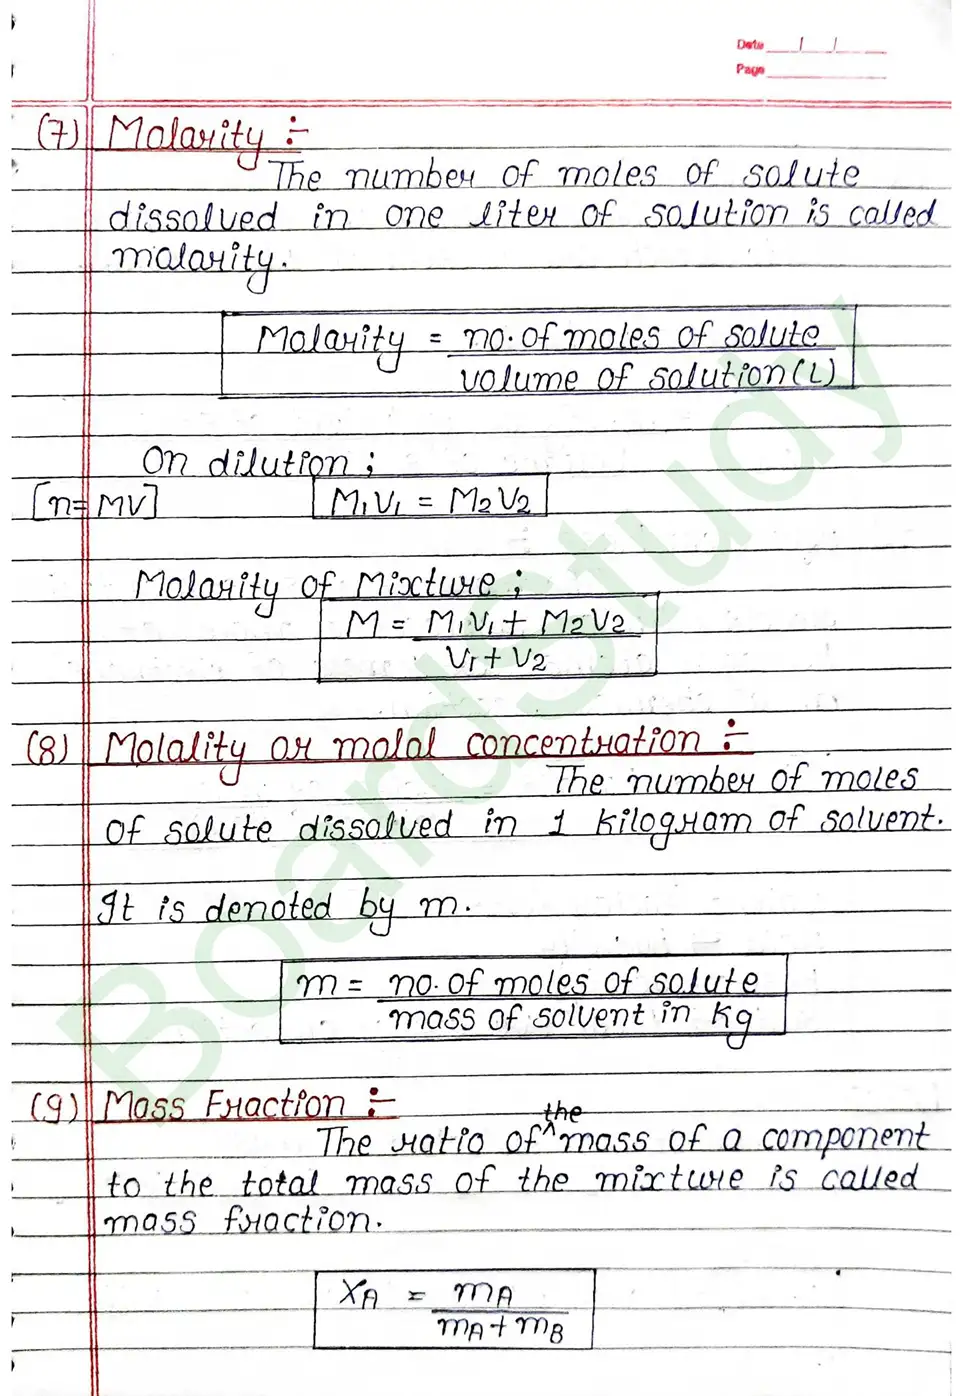 Date / /
Page
(7) Molarity :-
The number of moles of solute
dissolved in one liter of solution is called
molarity.
Molarity = no. of moles of solute
volume of solution (L)
On dilution ;
[n= MV] M1V1 = M2V2
Molarity of Mixture ;
M = M1V1 + M2V2
V1 + V2
(8) Molality or molal concentration :-
The number of moles
of solute dissolved in 1 kilogram of solvent.
It is denoted by m.
m = no. of moles of solute
mass of solvent in Kg
(9) Mass Fraction :-
the
The ratio of ^ mass of a component
to the total mass of the mixture is called
mass fraction.
XA = mA
mA + mB
BoardStudy